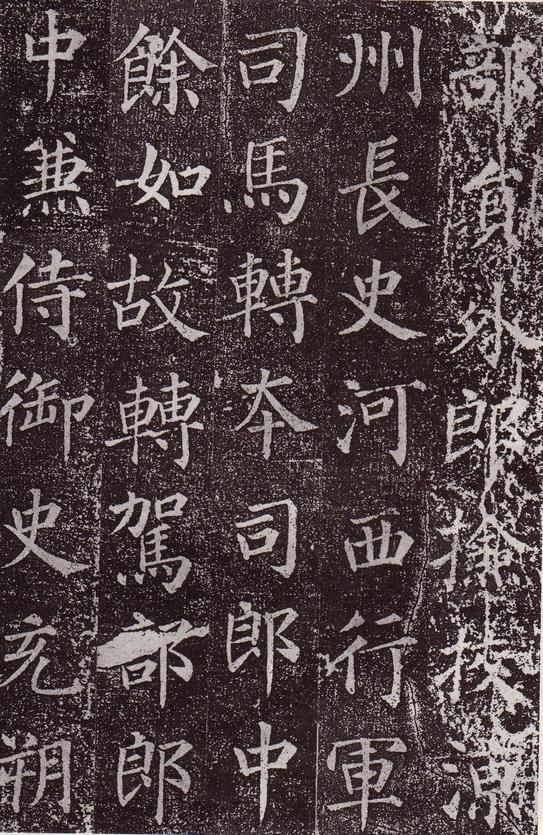 部員外郎撿挍涼
州長史河西行軍
司馬轉夲司郎中
餘如故轉駕部郎
中兼侍御史充朔